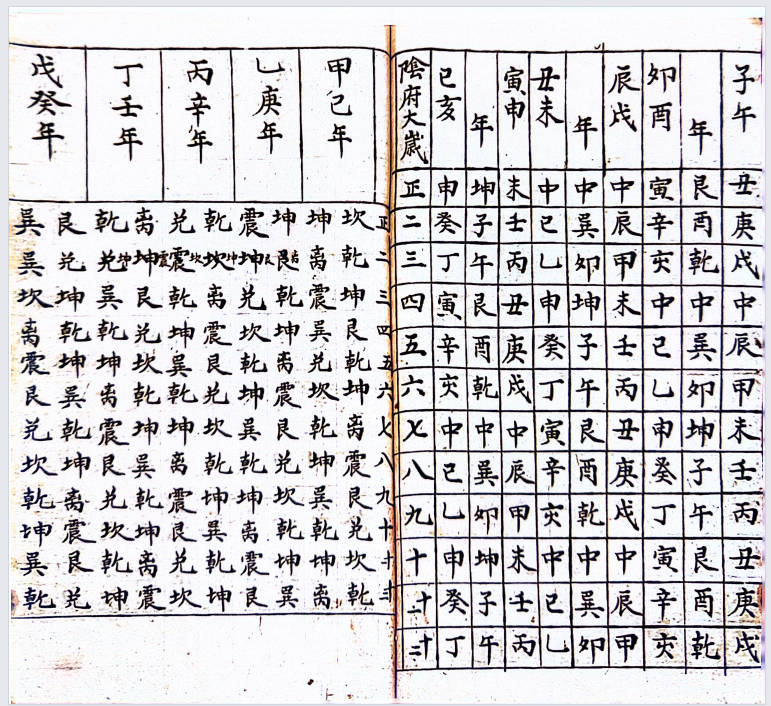 子午丑庚戌中辰甲未壬丙丑庚戌
年艮酉乾中巽卯坤子午艮酉乾
卯酉寅辛亥中巳乙申癸丁寅辛亥
辰戌中辰甲未壬丙丑庚戌中辰甲
年中巽卯坤子午艮酉乾中巽卯
丑未中巳乙申癸丁寅辛亥中巳乙
寅申未壬丙丑庚戌中辰甲未壬丙
年坤子午艮酉乾中巽卯坤子午
巳亥申癸丁寅辛亥中巳乙申癸丁
陰府大歲正二三四五六七八九十十一十二
正二三四五六七八九十十一十二
甲己年
坎乾坤艮乾坤离震艮兌坎乾
坤离震巽兌坎乾坤巽乾坤离
乙庚年
坤艮乾坤离震艮兌坎乾坤巽
震坤兌坎乾坤巽乾坤离震艮
丙辛年
乾坎离震艮兌坎乾坤巽乾坤
兌震乾坤巽乾坤离震艮兌坎
丁壬年
离坤艮兌坎乾坤巽乾坤离震
乾兌巽乾坤离震艮兌坎乾坤
戊癸年
艮兌坤乾坤巽乾坤离震艮兌
巽巽坎离震艮兌坎乾坤巽乾